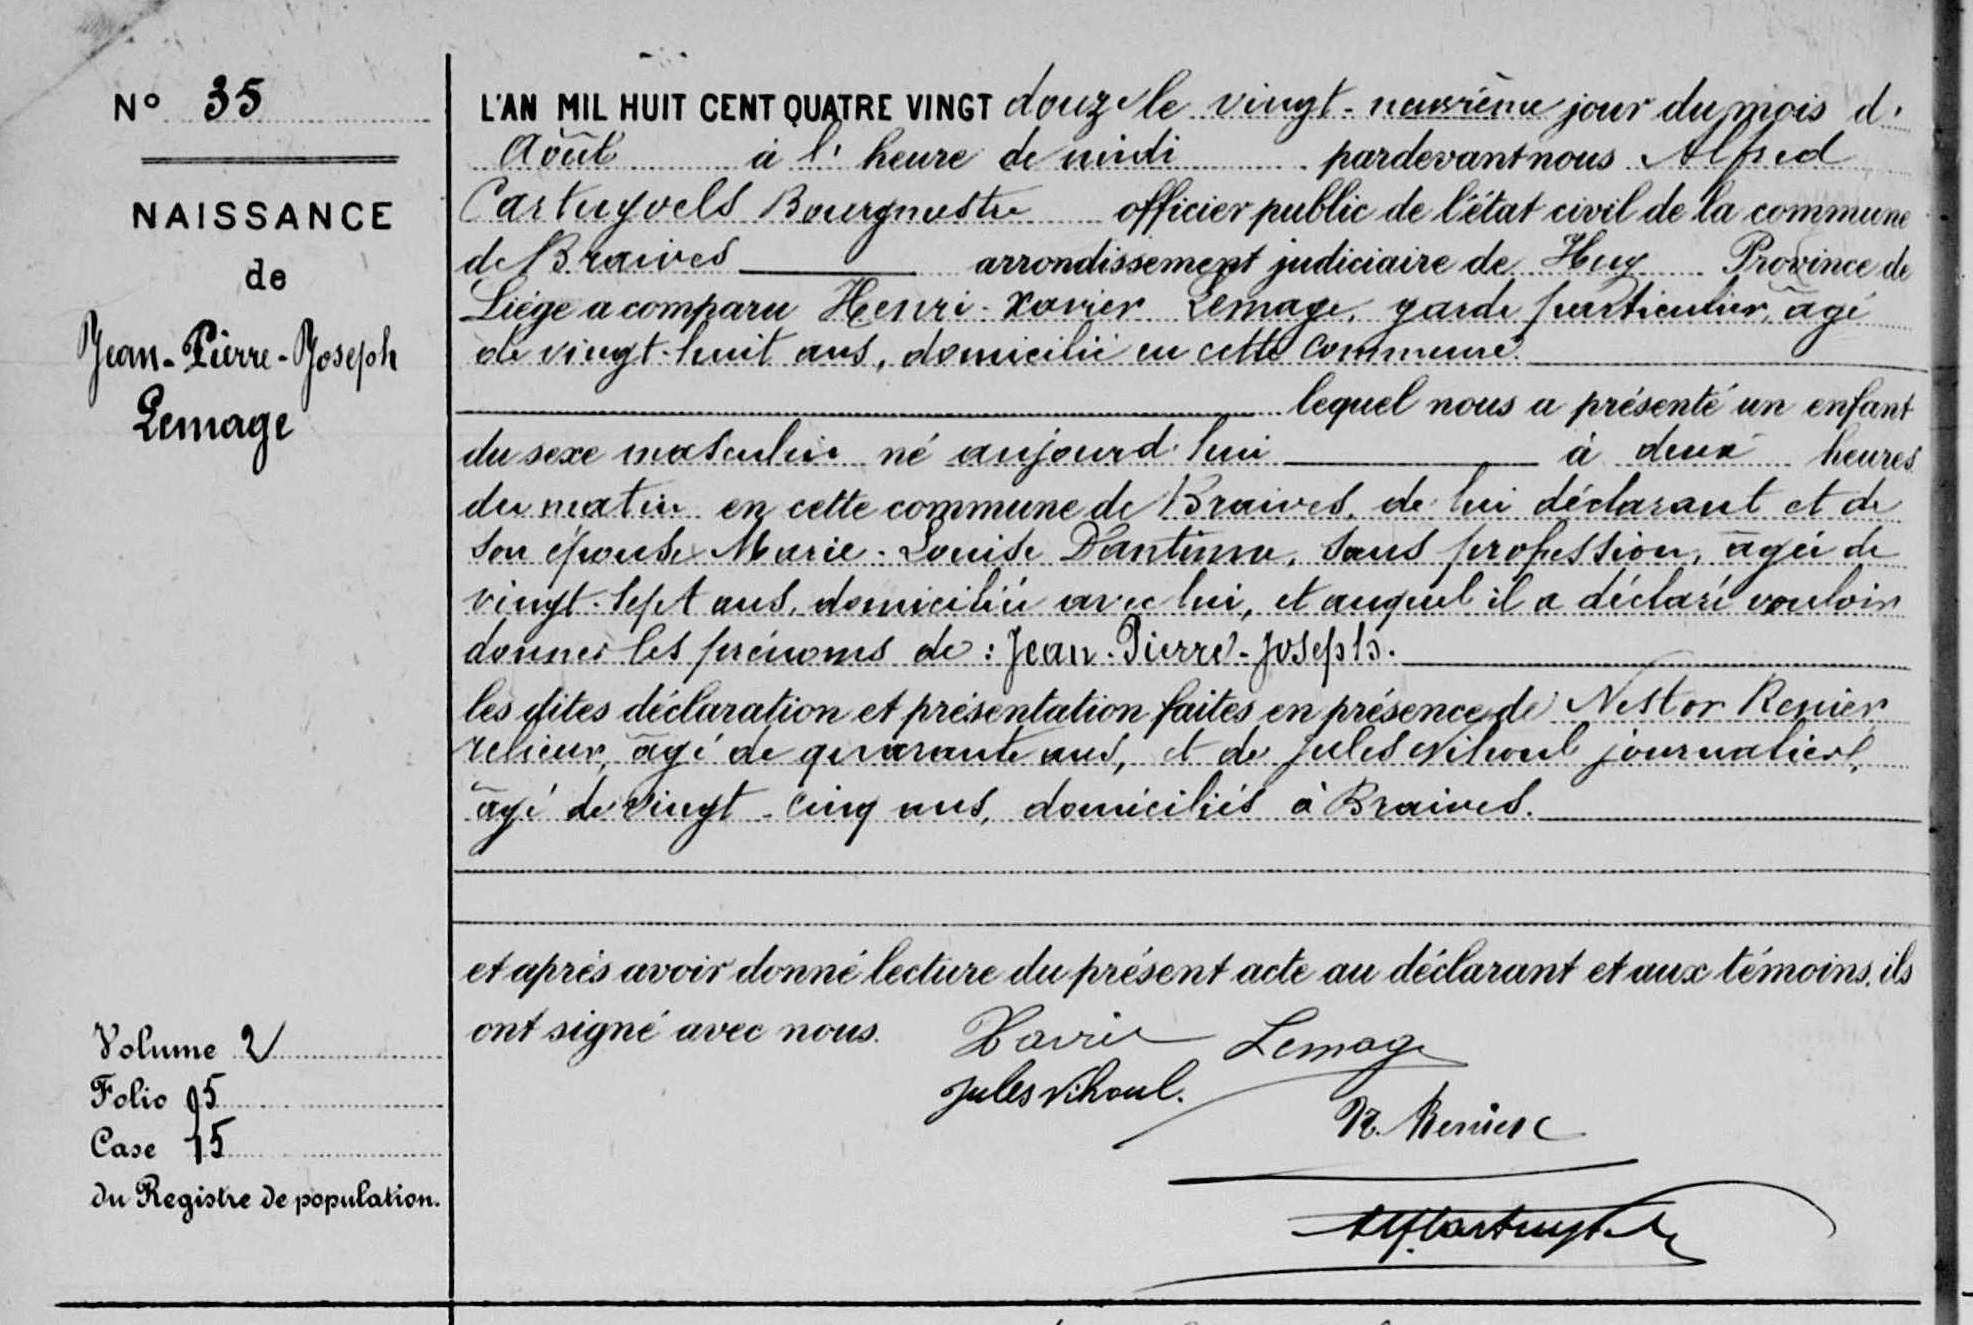 N° 35
NAISSANCE
de
Jean-Pierre-Joseph
Lemage
Volume 2
Folio 95
Case 15
du Registre de population.
L'AN MIL HUIT CENT QUATRE VINGT douze le vingt-neuvième jour du mois d'
Août à l'heure de midi pardevant nous Alfred
Cartuyvels Bourgmestre officier public de l'état civil de la commune
de Braives arrondissement judiciaire de Huy Province de
Liége a comparu Henri-Xavier Lemage, garde particulier, âgé
de vingt-huit ans, domicilié en cette commune.
lequel nous a présenté un enfant
du sexe masculin né aujourd'hui à deux heures
du matin en cette commune de Braives, de lui déclarant et de
son épouse Marie-Louise Dantinne, sans profession, âgée de
vingt-sept ans, domiciliée avec lui, et auquel il a déclaré vouloir
donner les prénoms de : Jean-Pierre-Joseph.
les dites déclaration et présentation faites en présence de Nestor Renier
relieur, âgé de quarante ans, et de Jules Vihoul journalier,
âgé de vingt-cinq ans, domiciliés à Braives.
et après avoir donné lecture du présent acte au déclarant et aux témoins, ils
ont signé avec nous. Xavier Lemage
Jules Vihoul.
N. Renier
Alf Cartuyvels